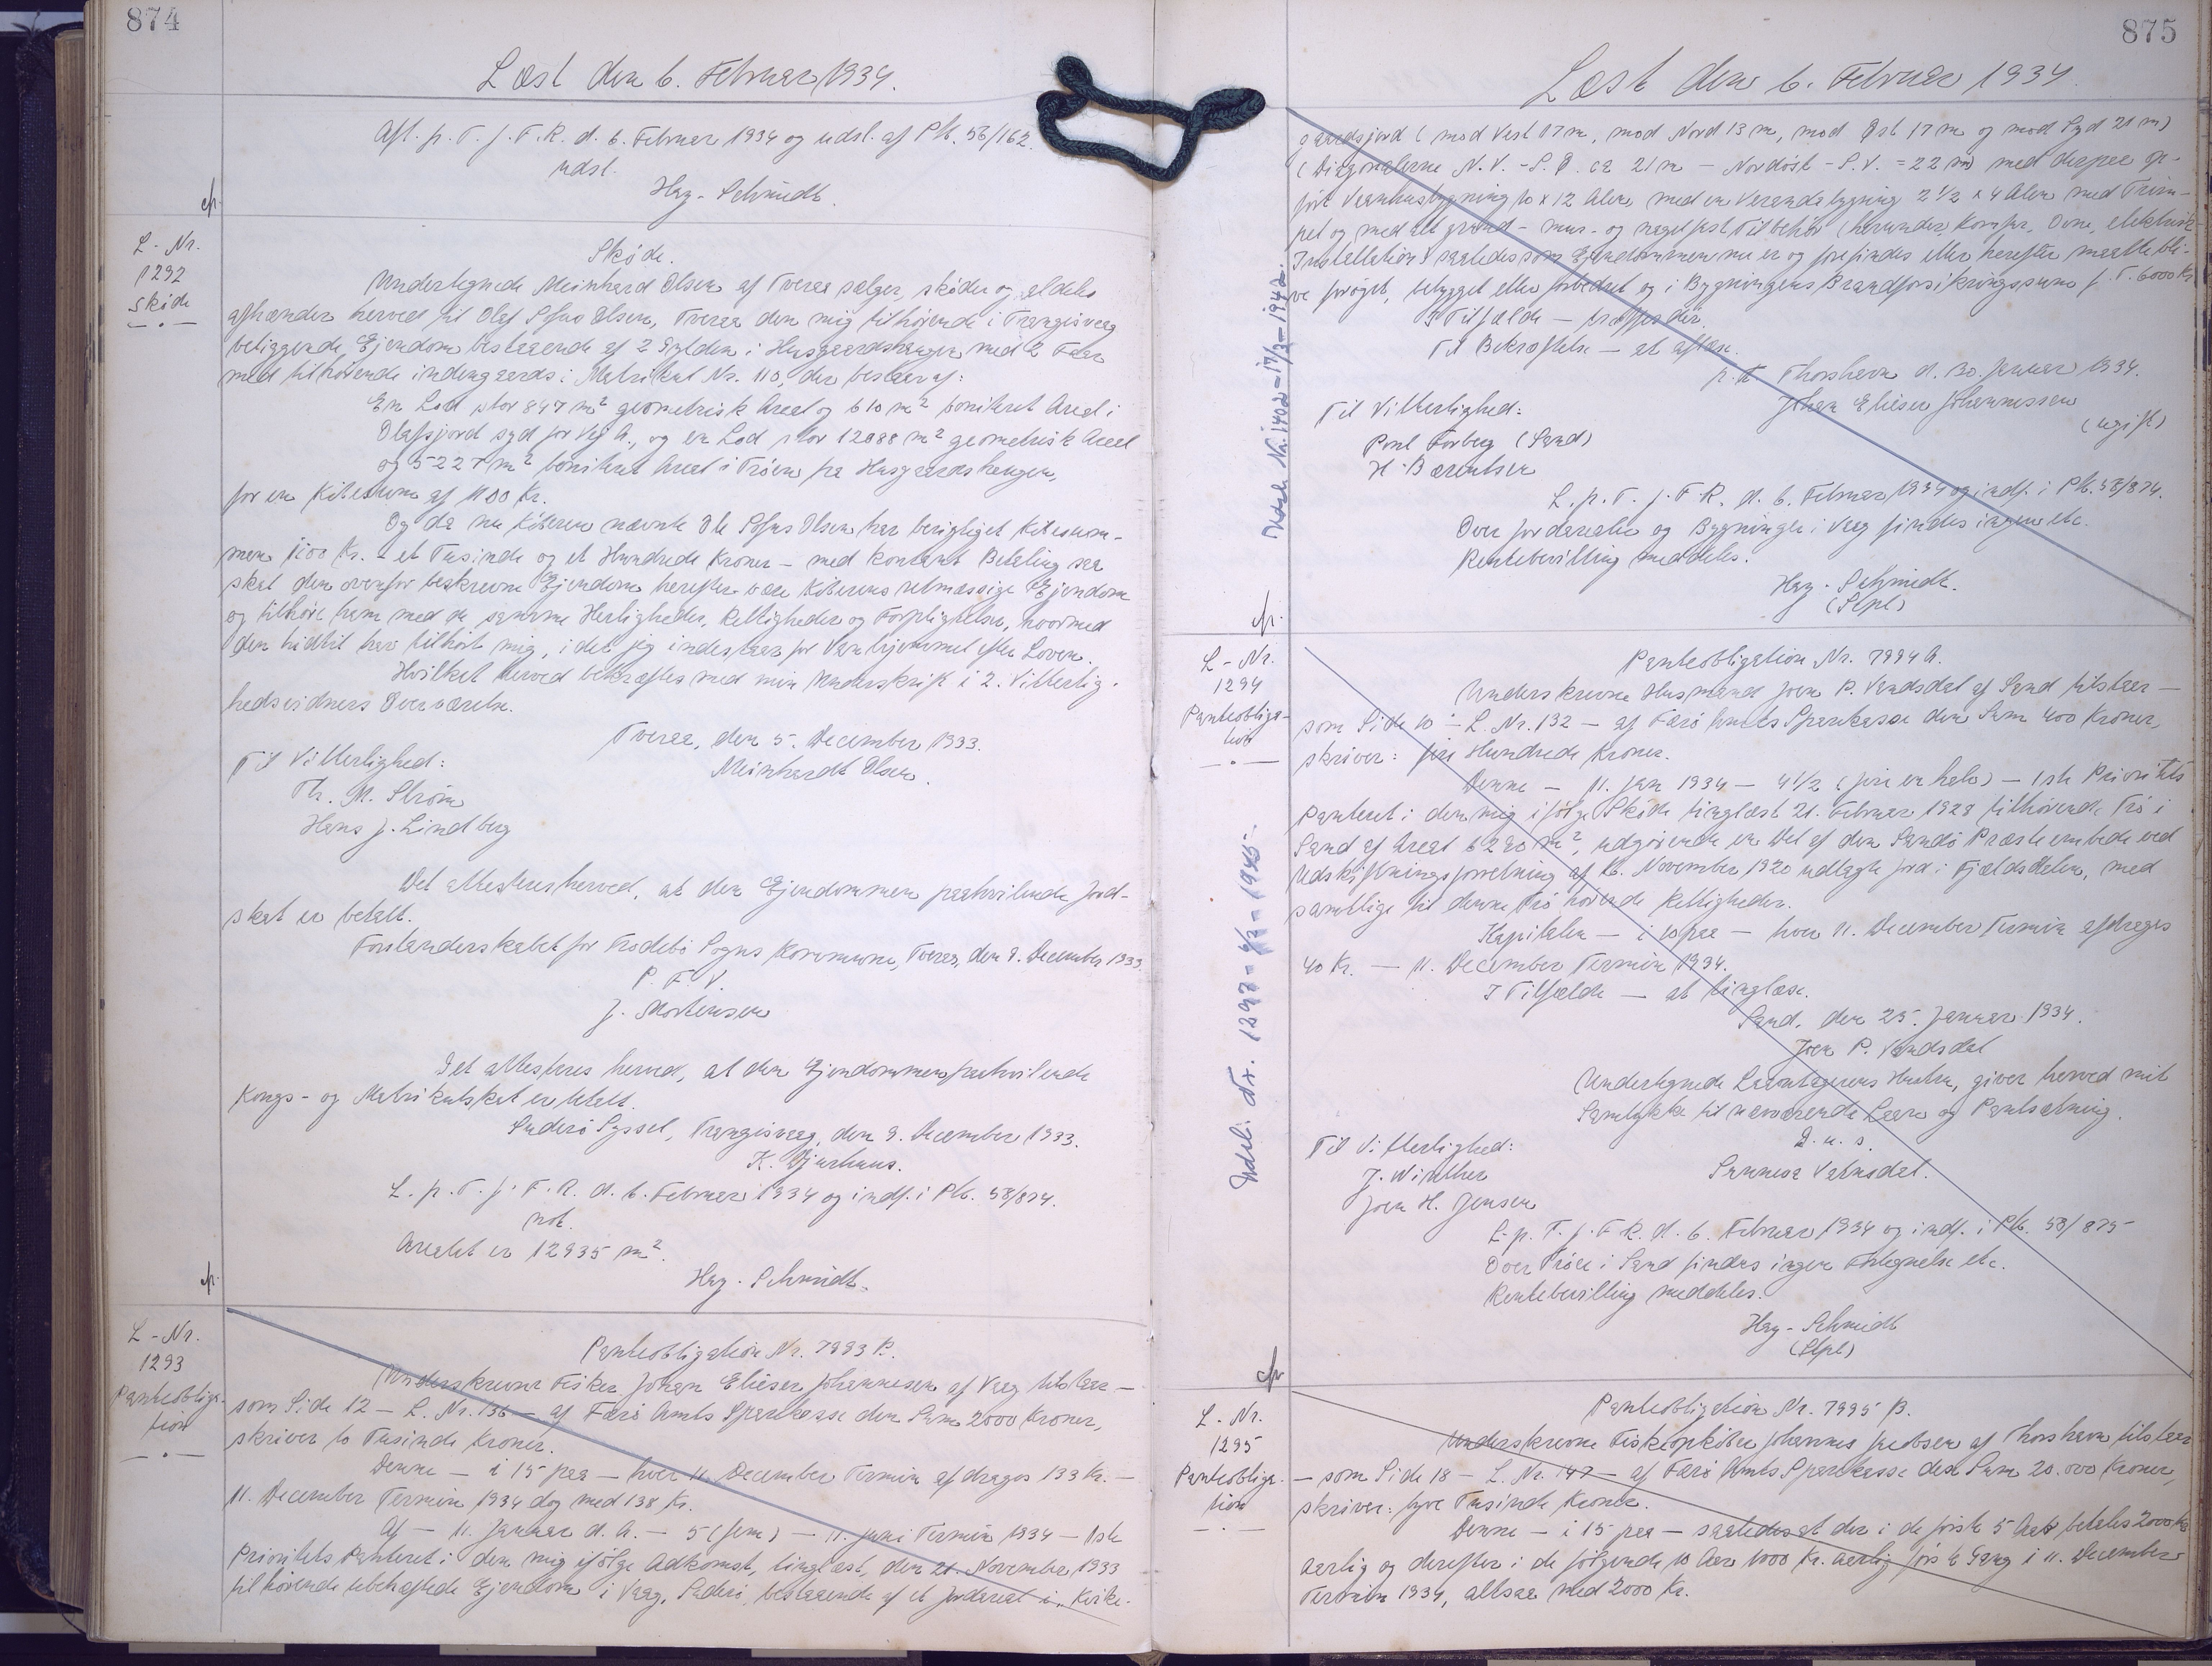 874
Læst den 6. Februar 1934.
Afl. p. T. f. F. R. d. 6. Februar 1934 og udsl. af Pk. 56/162.
udsl.
Hay-Schmidt.
cfr.
L-Nr.
1292
Skøde
Skøde.
Undertegnede Meinhard Olsen af Tveraa sælger, skøder og aldeles
afhænder herved til Olaf Sofus Olsen, Tveraa den mig tilhørende i Trangisvaag
beliggende Ejendom bestaaende af 2 Gylden i Husgaardshaugen med 2 Faar
med tilhørende indengaards: Matrikul Nr. 110, der bestaar af:
En Lod stor 847 m² geometrisk Areal og 610 m² boniteret Areal i
Olafsjord syd for Vej A., og en Lod stor 12088 m² geometrisk Areal
og 5227 m² boniteret Areal i Trøen fra Husgaardshaugen,
for en Købesum af 1100 Kr.
Og da nu Køberen nævnte Ole Sofus Olsen har berigtiget Købesum-
men 1100 Kr. - et Tusinde og et Hundrede Kroner - med kontant Betaling saa
skal den ovenfor beskrevne Ejendom herefter være Køberens retmæssige Ejendom
og tilhøre ham med de samme Herligheder, Rettigheder og Forpligtelser, hvormed
den hidtil har tilhørt mig, idet jeg indestaar for Vanhjemmel efter Loven.
Hvilket herved bekræftes med min Underskrift i 2. Vitterlig-
hedsvidners Overværelse.
Tveraa, den 5. December 1933.
Til Vitterlighed:
Meinhardt Olsen.
Th. M. Strøm
Hans J. Lindberg
Det attesteres herved, at den Ejendommen paahvilende Jord-
skat er betalt.
Forstanderskabet for Frodebø Sogns Kommune, Tveraa, den 9. December 1933
P. F. V.
J. Mortensen
Det attesteres herved, at den Ejendommen paahvilende
Kongs- og Matrikulskat er betalt.
Suderø Syssel, Trangisvaag, den 9. December 1933.
K. Djurhuus.
L. p. T. f. F. R. d. 6. Februar 1934 og indf. i Pk. 58/874.
not.
Arealet er 12935 m².
Hay-Schmidt.
cfr.
L-Nr.
1293
Panteobliga-
tion
Panteobligation Nr. 7993 B.
Underskrevne Fisker Johan Elieser Johannesen af Vaag tilstaar —
som Side 12 — L. Nr. 136 — af Færø Amts Sparekasse den Sum 2000 Kroner,
skriver to Tusinde Kroner.
Denne — i 15 paa — hver 11. December Termin afdrages 133 Kr. —
11. December Termin 1934 dog med 138 Kr.
Af — 11. Januar d. A. — 5 (fem) — 11. Juni Termin 1934 — 1ste
Prioritets Panteret i den mig ifølge Adkomst, tinglæst, den 21. November 1933
tilhørende ubehæftede Ejendom i Vaag, Suderø, bestaaende af et Jordareal i Kirke-
875
Læst den 6. Februar 1934.
gaardsjord (mod Vest 17 m, mod Nord 13 m, mod Øst 17 m og mod Syd 21 m)
(Diagonalerne N.V. - S.Ø. ca 21 m — Nordøst - S.V. = 22 m) med derpaa op-
ført Vaanhusbygning 10 x 12 Alen, med en Verandabygning 2 1/2 x 4 Alen med Trim-
pel og med alt grund- mur- og nagelfast Tilbehør (herunder Komfur, Ovne, elektrisk
Installation) saaledes som Ejendommen nu er og forefindes eller herefter maatte bli-
ve forøget, bebygget eller forbedret og i Bygningens Brandforsikringssum f. T. 6000 Kr.
I Tilfælde — træffes der.
Til Bekræftelse — at aflæse.
p. t. Thorshavn d. 30. Januar 1934.
Til Vitterlighed:
Johan Elieser Johannessen
(ugift)
Poul Forberg (Sand)
H. Bærentsen
L. p. T. f. F. R. d. 6. Februar 1934 og indf. i Pk. 58/874.
Over Jordarealet og Bygningen i Vaag findes ingen etc.
Rentebevilling meddeles.
Hay-Schmidt.
(Stpl)
cfr.
Udsl. Nr. 1402 - 17/3 - 1942.
L-Nr.
1294
Panteobliga-
tion
Panteobligation Nr. 7994 A.
Underskrevne Husmand Joen P. Vandsdal af Sand tilstaar —
som Side 10 — L. Nr. 132 — af Færø Amts Sparekasse den Sum 400 Kroner,
skriver: fire Hundrede Kroner.
Denne — 11. Jan 1934 — 4 1/2 (fire en halv) — 1ste Prioritets
Panteret i den mig ifølge Skøde tinglæst 21. Februar 1928 tilhørende Trø i
Sand af Areal 6290 m², udgørende en Del af den Sandø Præsteembede ved
Udskiftningsforretning af 16. November 1920 udlagte Jord i Fjældsdelen, med
samtlige til denne Trø hørende Rettigheder.
Kapitalen — i 10 paa — hver 11. December Termin afdrages
40 Kr. — 11. December Termin 1934.
I Tilfælde — at tinglæse.
Sand, den 25. Januar 1934.
Joen P. Vandsdal
Undertegnede Laantagerens Hustru, giver herved mit
Samtykke til nærværende Laan og Pantsætning.
D. u. s.
Til Vitterlighed:
J. Winther
Joen H. Jensen
L. p. T. f. F. R. d. 6. Februar 1934 og indf. i Pk. 58/875
Over Trøen i Sand findes ingen Optegnelse etc.
Rentebevilling meddeles.
Hay-Schmidt
(Stpl)
cfr
L. Nr.
1295
Panteobliga-
tion
Panteobligation Nr. 7995 B.
Underskrevne Fiskeopkøber Johannes Jacobsen af Thorshavn tilstaar
— som Side 18 — L. Nr. 147 — af Færø Amts Sparekasse den Sum 20.000 Kroner,
skriver: tyve Tusinde Kroner.
Denne — i 15 paa — saaledes at der i de første 5 Aar betales 2000 Kr
aarlig og derefter i de følgende 10 Aar 1000 Kr. aarlig, første Gang i 11. December
Termin 1934, altsaa med 2000 Kr.